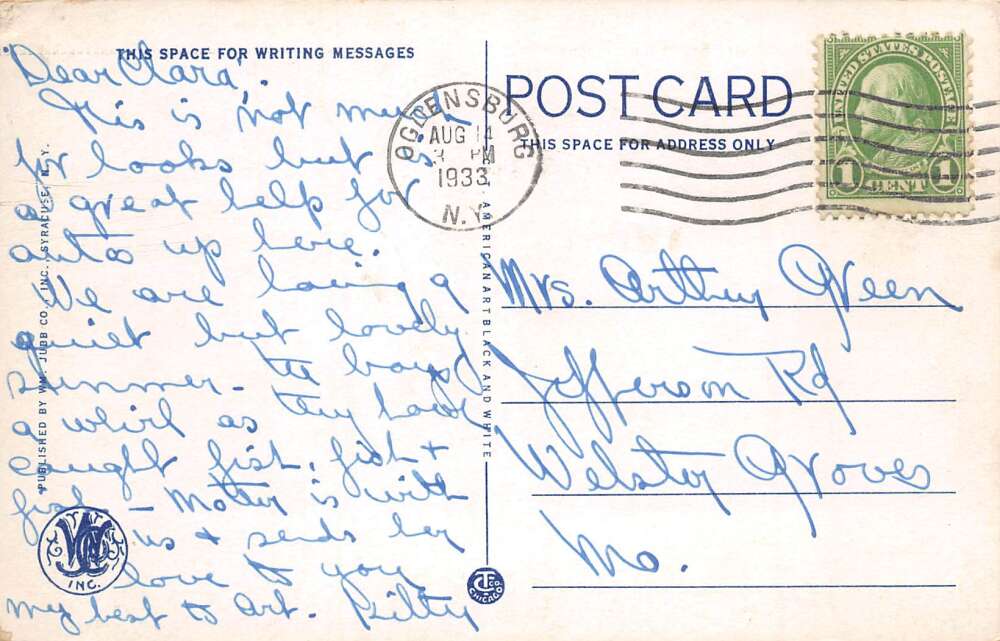 THIS SPACE FOR WRITING MESSAGES
Dear Clara,
This is not much
for looks but is
a great help for
autos up here.
We are having a
quiet but lovely
summer - the boys
a whirl as they have
caught fish, fish +
fish - Mother is with
us + sends her
love to you
my best to Art. Kitty
PUBLISHED BY WM. JUBB CO., INC., SYRACUSE, N.Y.
INC.
AMERICAN ART BLACK AND WHITE
C.T. CO. CHICAGO
POST CARD
THIS SPACE FOR ADDRESS ONLY
OGDENSBURG
AUG 14
PM
1933
N.Y.
UNITED STATES POSTAGE
1 CENT 1
Mrs. Arthur Green
Jefferson Rd
Webster Groves
Mo.